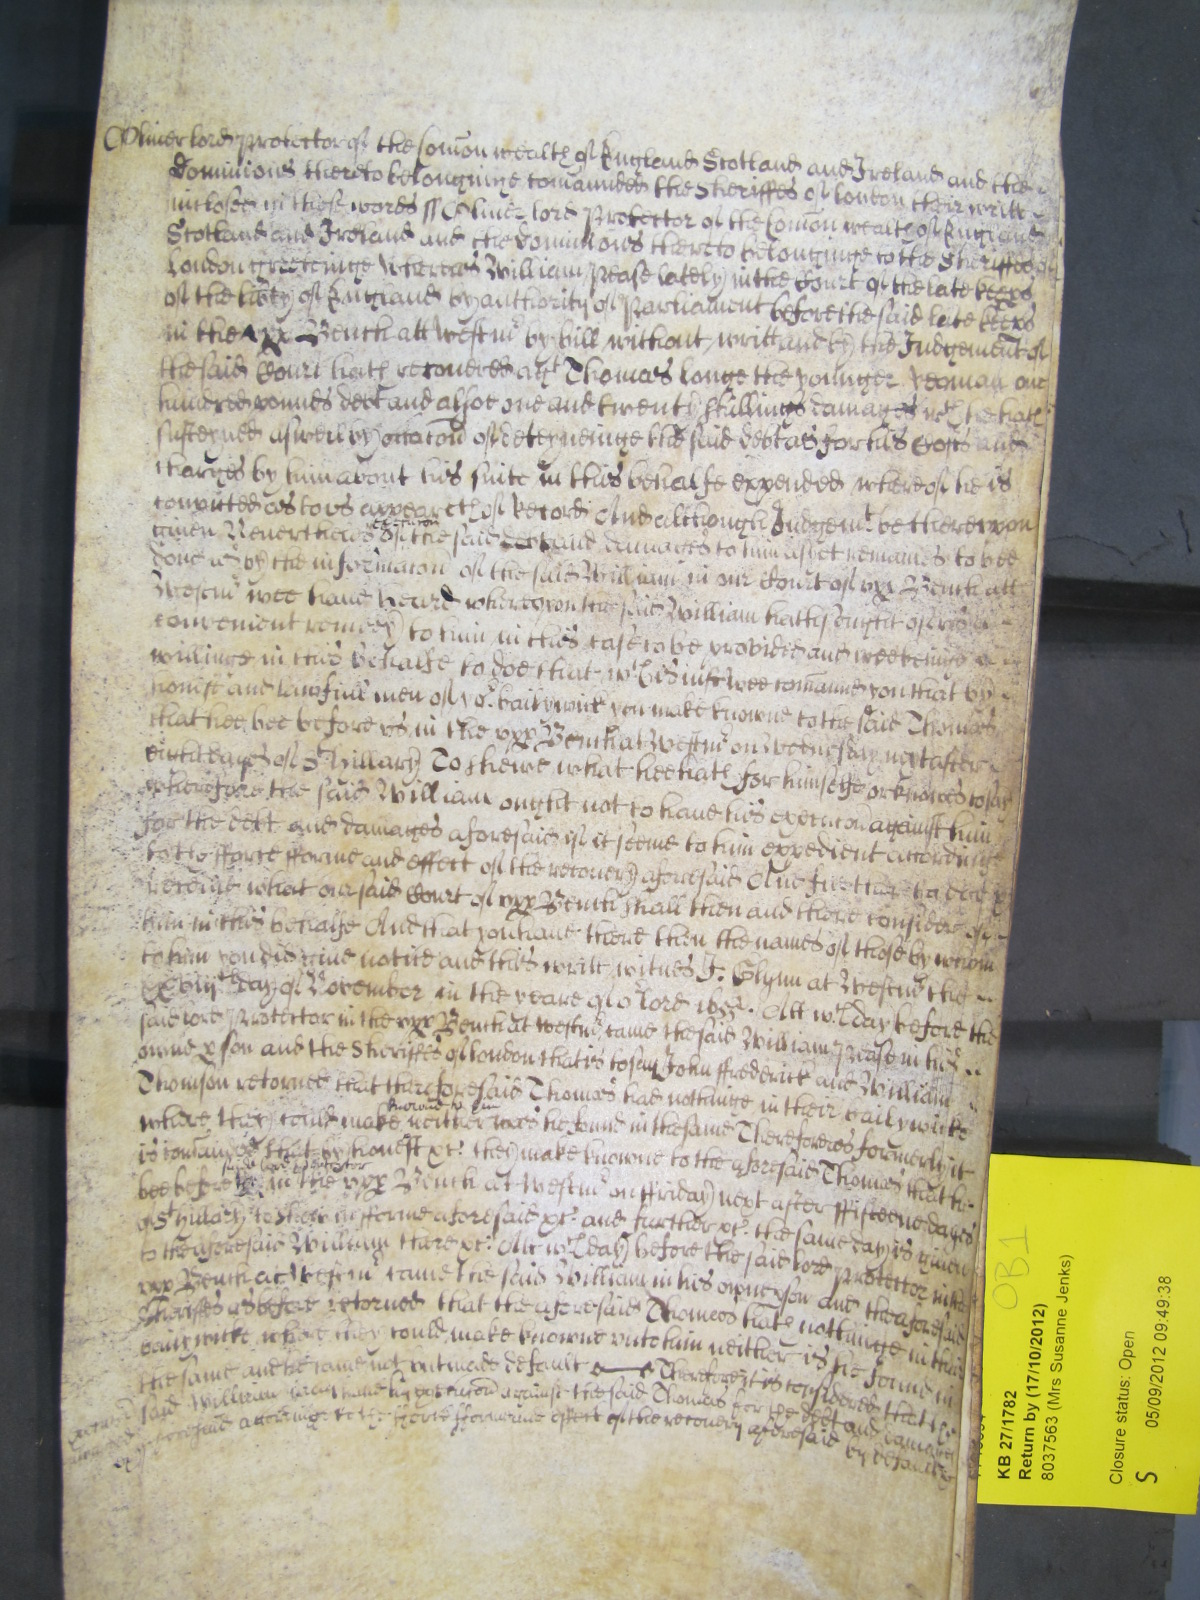 Oliver lord Protector of the Comon wealth of England Scotland and Ireland and the
dominions thereto belonginge comaunded the Sheriffes of London their writt
inclosed in these words ss Oliver lord Protector of the Comon wealth of England
Scotland and Ireland and the dominions thereto belonginge to the Sheriffes of
London greetinge Whereas William Pease lately in the Court of the late keeps
of the libty of England by authority of Parliament before the said late keeps
in the upp Bench att Westmr by bill without writt and by the Judgement of
the said Court hath recovered agt Thomas Longe the younger yeoman one
hundred pounds debt and alsoe one and twenty shillings damages wch he hath
susteyned aswell by occacon of deteyneinge the said debt as for his Costs and
charges by him about his suite in this behalfe expended whereof he is
convicted as to us appeareth of Record And although Judgemt be thereupon
given Nevertheles execucon of the said debt and damages to him as yet remaines to bee
done as by the informacon of the said William in our Court of upp Bench att
Westmr wee have heard whereupon the said William hath sought of us a
convenient remedy to him in this case to be provided and wee beinge
willinge in this behalfe to doe that wch is just wee comaund you that by
honest and lawfull men of yor bailywick you make knowne to the said Thomas
that hee bee before us in the upp Bench at Westmr on Wednesday next after
eight dayes of St Hillary To shewe what hee hath for himselfe or knowes to say
wherefore the said William ought not to have his execucon against him
for the debt and damages aforesaid if it seeme to him expedient accordinge
to the force forme and effect of the recovery aforesaid And further to doe &
receive what our said Court of upp Bench shall then and there consider of
him in this behalfe And that you have there then the names of those by whom
to him you did give notice and this writt witnes J. Glynn at Westmr the
day of November in the yeare of or lord Att wch day before the
said lord Protector in the upp Bench at Westmr came the said William Pease in his
owne pson and the Sheriffes of London that is to say John Frederick and William
Thomson retorned that the aforesaid Thomas had nothinge in their bailywicke
where they could make knowne to him neither was he found in the same Therefore as formerly it
is comaunded that by honest &c they make knowne to the aforesaid Thomas that he
bee before said lord Protector in the upp Bench at Westmr on Friday next after fifteene dayes
of St Hillary to shew in forme aforesaid &c and further &c the same day is given
to the aforesaid William there &c Att wch day before the said lord Protector in the
upp Bench at Westmr came the said William in his owne pson and the aforesaid
Sheriffes as before retorned that the aforesaid Thomas hath nothinge in their
bailywicke where they could make knowne unto him neither is he found in
the same and he came not but made default Therefore it is considered that the
said William have his execucon against the said Thomas for the debt and damages
aforesaid accordinge to the force forme and effect of the recovery aforesaid by default &c
OB1
KB 27/1782
Return by (17/10/2012)
8037563 (Mrs Susanne Jenks)
Closure status: Open
S 05/09/2012 09:49:38